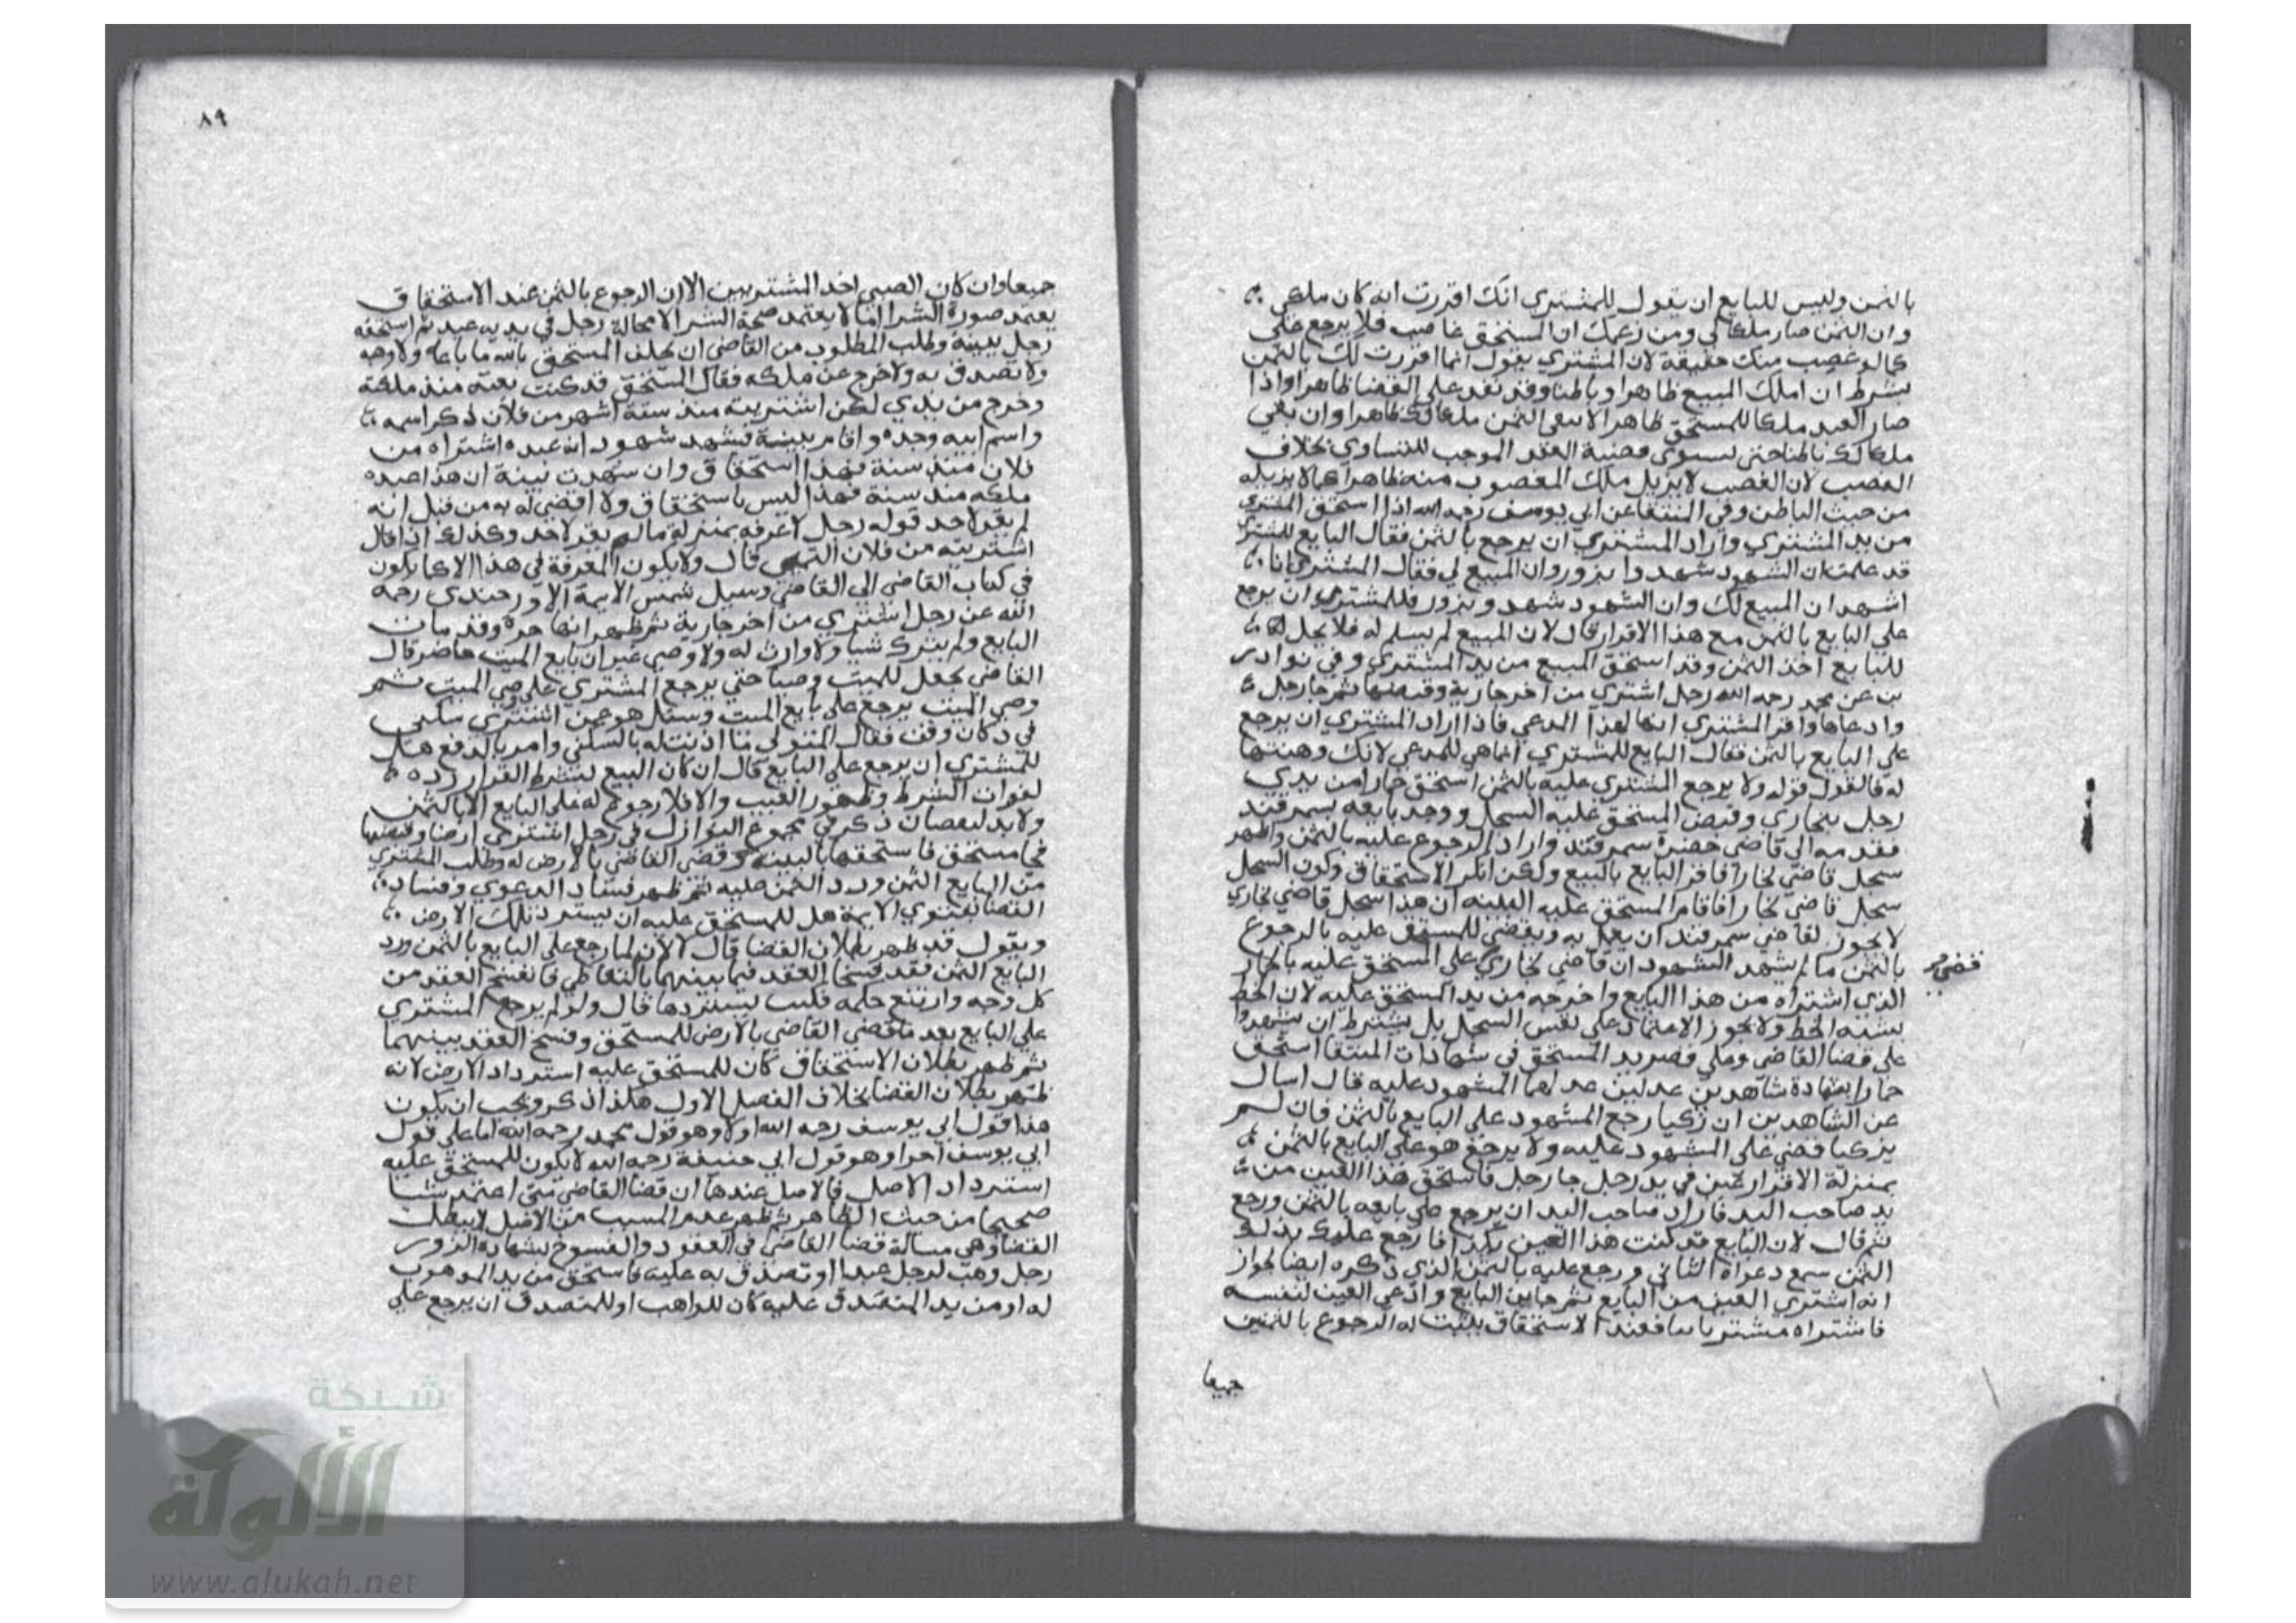 بالثمن وليس للبايع ان يقول للمشتري انك اقررت انه كان ملكي
وان الثمن صار ملكا لي ومن زعمك ان المستحق غاصب فلا يرجع علي
كما لو غصب منك حقيقة لان المشتري يقول انما اقررت لك بالثمن
بشرط ان املك المبيع ظاهرا وباطنا وقد نفد علي القضا ظاهرا واذا
صار العبد ملكا للمستحق ظاهرا لا يبقى الثمن ملكا لك ظاهرا وان بقي
ملكا لك باطنا حتى يستوي قضية العقد الموجب للتساوي بخلاف
الغصب لان الغصب لا يزيل ملك المغصوب منه ظاهرا كما لا يزيله
من حيث الباطن وفي المنتقا عن ابي يوسف رحمه الله اذا استحق المشتري
من يد المشتري واراد المشتري ان يرجع بالثمن فقال البايع للمشتري
قد علمت ان الشهود شهدوا بزور وان المبيع لي فقال المشتري انا
اشهد ان المبيع لك وان الشهود شهدو بزور فللمشتري ان يرجع
على البايع بالثمن مع هذا الاقرار قال لان المبيع لم يسلم له فلا يحل
للبايع اخذ الثمن وقد استحق المبيع من يد المشتري وفي نوادر
عن محمد رحمه الله رجل اشترى من اخر جارية وقبضها ثم جا رجل
وادعاها واقر المشتري انها لهذا المدعي فاذا اراد المشتري ان يرجع
على البايع بالثمن فقال البايع للمشتري انما هي للمدعي لانك وهبتها
له فالقول قوله ولا يرجع المشتري عليه بالثمن استحق حمارا من يدي
رجل ببخاري وقبض المستحق عليه السجل ووجد بايعه بسمرقند
فقدمه الي قاضي سمرقند واراد الرجوع عليه بالثمن واظهر
سجل قاضي بخارا فاقر البايع بالبيع ولكن انكر الاستحقاق وكون السجل
سجل قاضي بخارا فاقام المستحق عليه البينه ان هذا سجل قاضي بخاري
لا يجوز لقاضي سمرقند ان يعمل به ويقضي للمستحق عليه بالرجوع
بالثمن ما لم يشهد الشهود ان قاضي بخاري على المستحق عليه بالحمار
قضى
الذي اشتراه من هذا البايع واخرجه من يد المستحق عليه لان الخط
يشبه الخط ولا يجوز الاعتماد على نفس السجل بل يشترط ان يشهدوا
على قضا القاضي وعلى قصر يد المستحق في شهادات المنتقا استحق
حمارا بشهادة شاهدين عدلين عدلهما المشهود عليه قال اسال
عن الشاهدين ان زكيا رجع المشهود على البايع بالثمن فان لم
يزكيا قضي على المشهود عليه ولا يرجع هو على البايع بالثمن
بمنزلة الاقرار عين في يد رجل جا رجل فاستحق هذا العين من
يد صاحب اليد فاراد صاحب اليد ان يرجع على بايعه بالثمن ورجع
ثم قال لان البايع قد كنت هذا العين بكذا فارجع عليك بذلك
الثمن سمع دعواه الثاني ورجع عليه بالثمن الذي ذكره ايضا لجواز
انه اشترى العين من البايع ثم جا بن البايع وادعى العين لنفسه
فاشتراه مشتريا فعند الاستحقاق يثبت له الرجوع بالثمنين
جميعا
٨٩
جميعا وان كان الصبي احد المشتريين الا ان الرجوع بالثمن عند الاستحقاق
يعتمد صورة الشرا اما لا يعتمد صحة الشرا لا محالة رجل في يديه عبد ثم استحقه
رجل ببينة وطلب المطلوب من القاضي ان يحلف المستحق بالله ما باعه ولا وهبه
ولا تصدق به ولا خرج عن ملكه فقال المستحق قد كنت بعته منذ ملكته
وخرج من يدي لكن اشتريته منذ ستة اشهر من فلان ذكر اسمه
واسم ابيه وجده واقام ببينة فشهد شهود انه عبده اشتراه من
فلان منذ سنة فهذا استحقاق وان شهدت بينة ان هذا عبده
ملكه منذ سنة فهذا ليس باستحقاق ولا اقضي له به من قبل انه
لم يقر لاحد قوله رجل لا اعرفه بمنزلة ما لم يقر لاحد وكذلك اذا قال
اشتريته من فلان التميمي قال ولا يكون المعرفة في هذا الا كما يكون
في كتاب القاضي الى القاضي وسيل شمس الايمة الاوزجندي رحمه
الله عن رجل اشترى من اخر جارية ثم ظهر انها حرة وقد مات
البايع ولم يترك شيا ولا وارث له ولا وصي غير ان بايع الميت حاضر قال
القاضي يجعل للميت وصيا حتى يرجع المشتري على وصي الميت ثم
وصي الميت يرجع على بايع الميت وسئل هو عمن اشترى سكنى
في دكان وقف فقال المتولي ما اذنت له بالسكنى وامر بالدفع هل
للمشتري ان يرجع على البايع قال ان كان البيع بشرط القرار رده
لفوات الشرط وظهور العيب والا فلا رجوع له على البايع لا بالثمن
ولا بدل نقصان ذكر في مجموع النوازل في رجل اشترى ارضا وقبضها
فجا مستحق فاستحقها بالبينة وقضى القاضي بالارض له وطلب المشتري
من البايع الثمن ورد الثمن عليه ثم ظهر فساد الدعوي وفساد
القضا بفتوي الايمة هل للمستحق عليه ان يسترد تلك الارض
ويقول قد ظهر بطلان القضا قال لا لان لما رجع على البايع بالثمن ورد
البايع الثمن فقد فسخا العقد فيما بينهما بالتعاطي فانفسخ العقد من
كل وجه وارتفع حكمه فليس يستردها قال ولو لم يرجع المشتري
على البايع بعد ما قضى القاضي بالارض للمستحق وفسخ العقد بينهما
ثم ظهر بطلان الاستحقاق كان للمستحق عليه استرداد الارض لانه
ظهر بطلان القضا بخلاف الفصل الاول هكذا ذكر ويجب ان يكون
هذا قول ابي يوسف رحمه الله اولا وهو قول محمد رحمه الله اما على قول
ابي يوسف اخرا وهو قول ابي حنيفة رحمه الله لا يكون للمستحق عليه
استرداد الاصل فالاصل عندهما ان قضا القاضي متى اعتمد شيا
صحيحا من حيث الظاهر ثم ظهر عدم السبب من الاصل لا يبطل
القضا وهي مسالة قضا القاضي في العقود والفسوخ بشهادة الزور
رجل وهب لرجل عبدا او تصدق به عليه فاستحق من يد الموهوب
له او من يد المتصدق عليه كان للواهب او للمتصدق ان يرجع على
شبكة
الألوكة
www.alukah.net